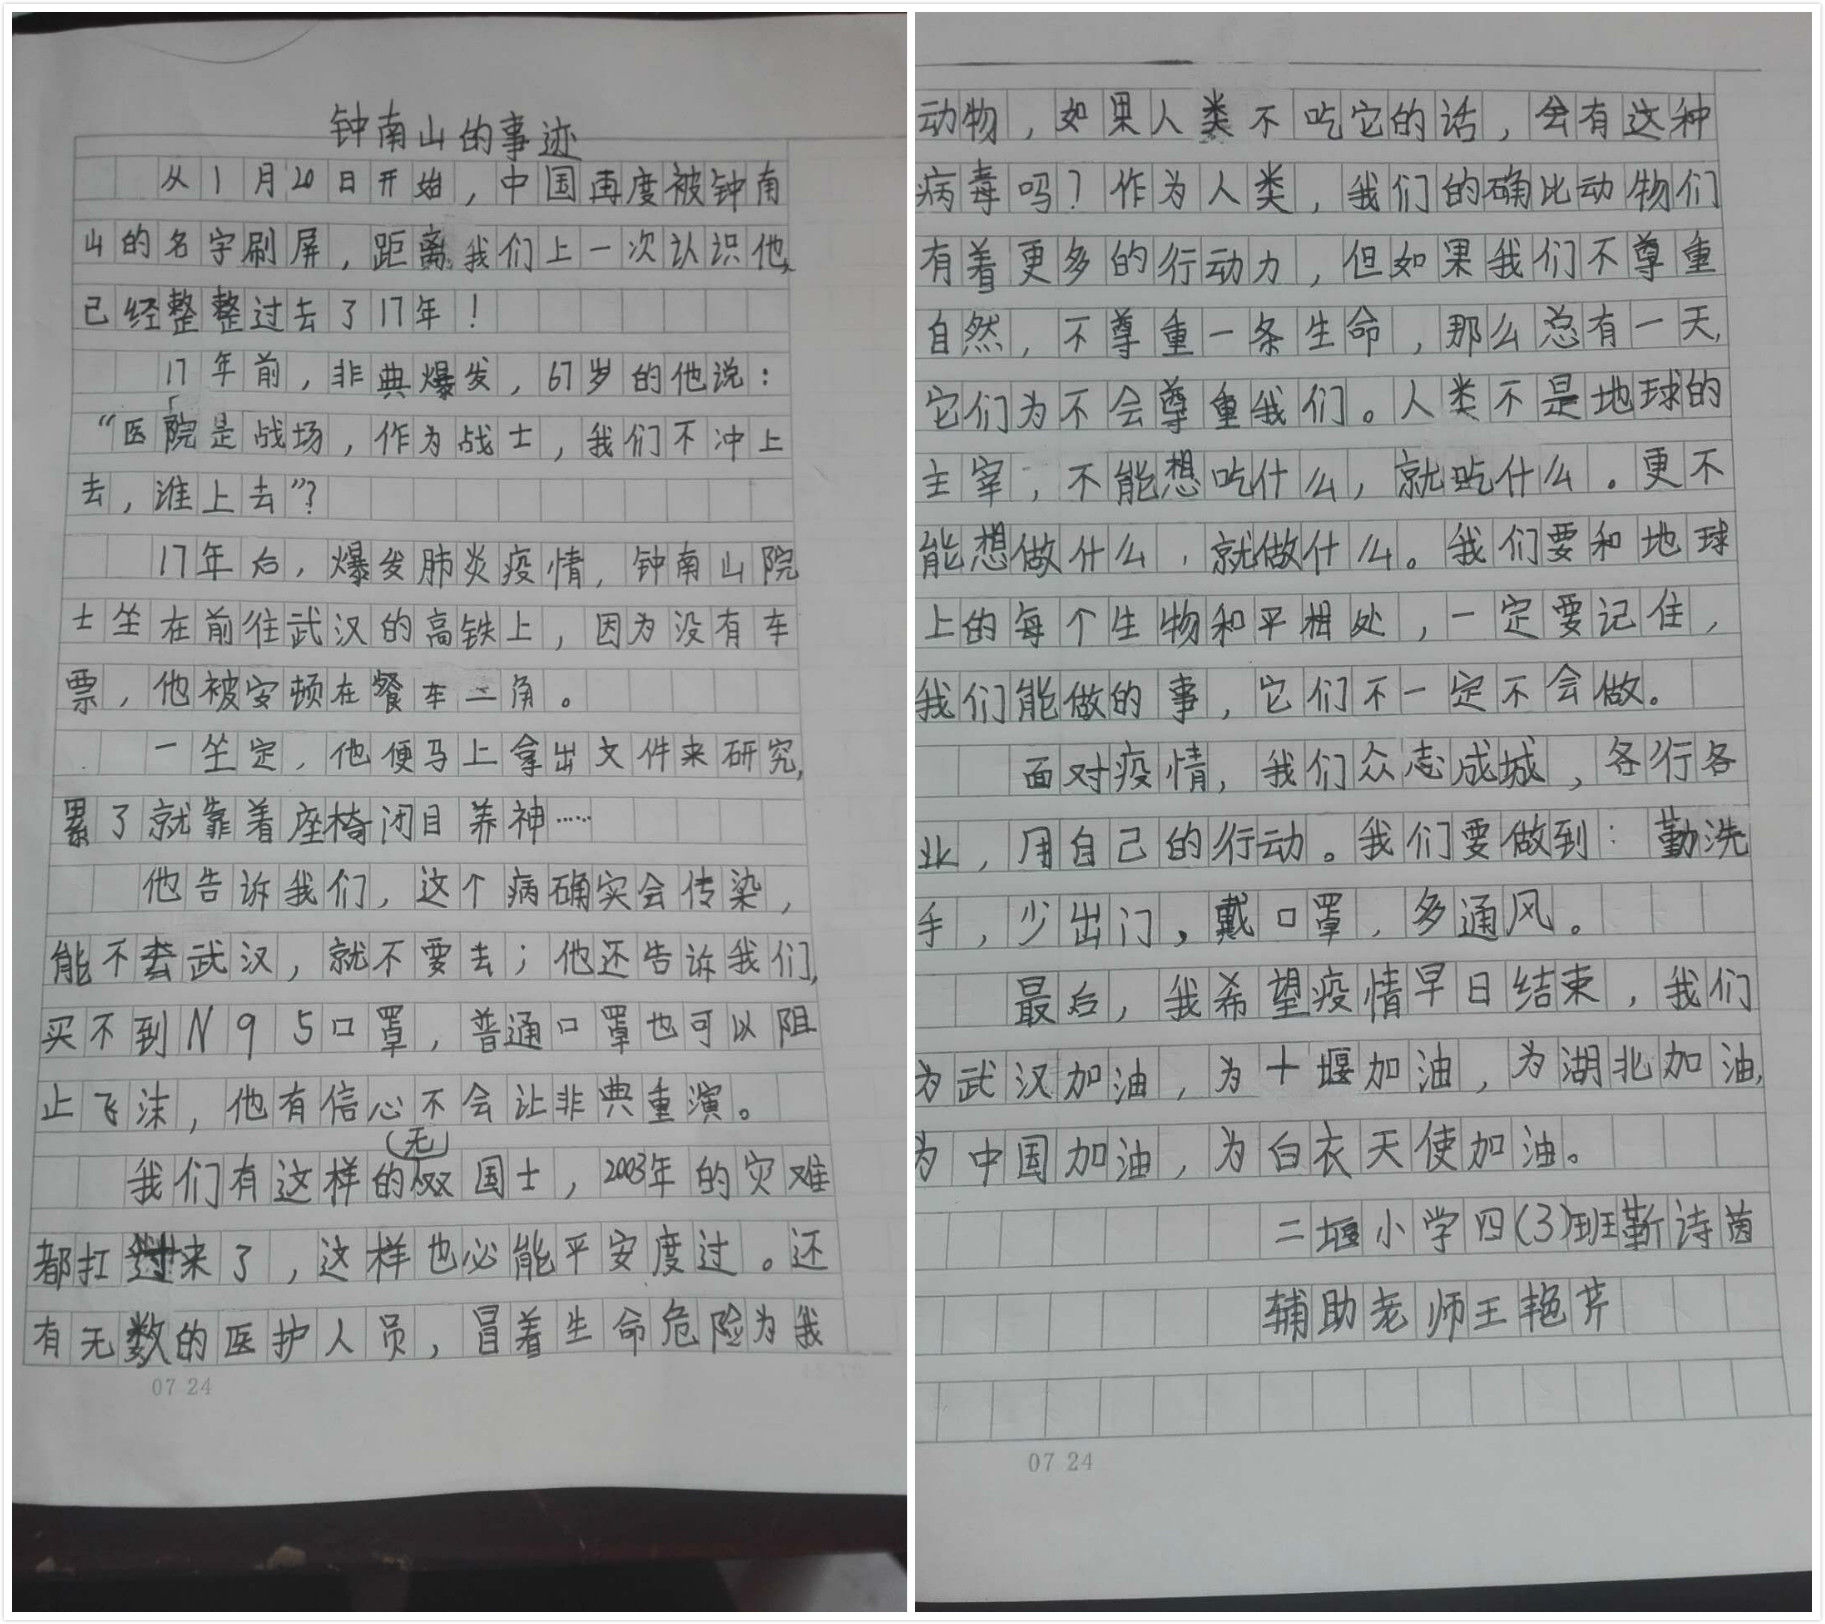 钟南山的事迹
从1月20日开始，中国再度被钟南
山的名字刷屏，距离我们上一次认识他，
已经整整过去了17年！
17年前，非典爆发，67岁的他说：
“医院是战场，作为战士，我们不冲上
去，谁上去”？
17年后，爆发肺炎疫情，钟南山院
士坐在前往武汉的高铁上，因为没有车
票，他被安顿在餐车一角。
一坐定，他便马上拿出文件来研究，
累了就靠着座椅闭目养神……
他告诉我们，这个病确实会传染，
能不去武汉，就不要去；他还告诉我们，
买不到N95口罩，普通口罩也可以阻
止飞沫，他有信心不会让非典重演。
我们有这样的(无)双国士，2003年的灾难
都扛过来了，这样也必能平安度过。还
有无数的医护人员，冒着生命危险为我
07 24
动物，如果人类不吃它的话，会有这种
病毒吗？作为人类，我们的确比动物们
有着更多的行动力，但如果我们不尊重
自然，不尊重一条生命，那么总有一天，
它们为不会尊重我们。人类不是地球的
主宰，不能想吃什么，就吃什么。更不
能想做什么，就做什么。我们要和地球
上的每个生物和平相处，一定要记住，
我们能做的事，它们不一定不会做。
面对疫情，我们众志成城，各行各
业，用自己的行动。我们要做到：勤洗
手，少出门，戴口罩，多通风。
最后，我希望疫情早日结束，我们
为武汉加油，为十堰加油，为湖北加油，
为中国加油，为白衣天使加油。
二堰小学四(3)班靳诗茵
辅助老师王艳芹
07 24